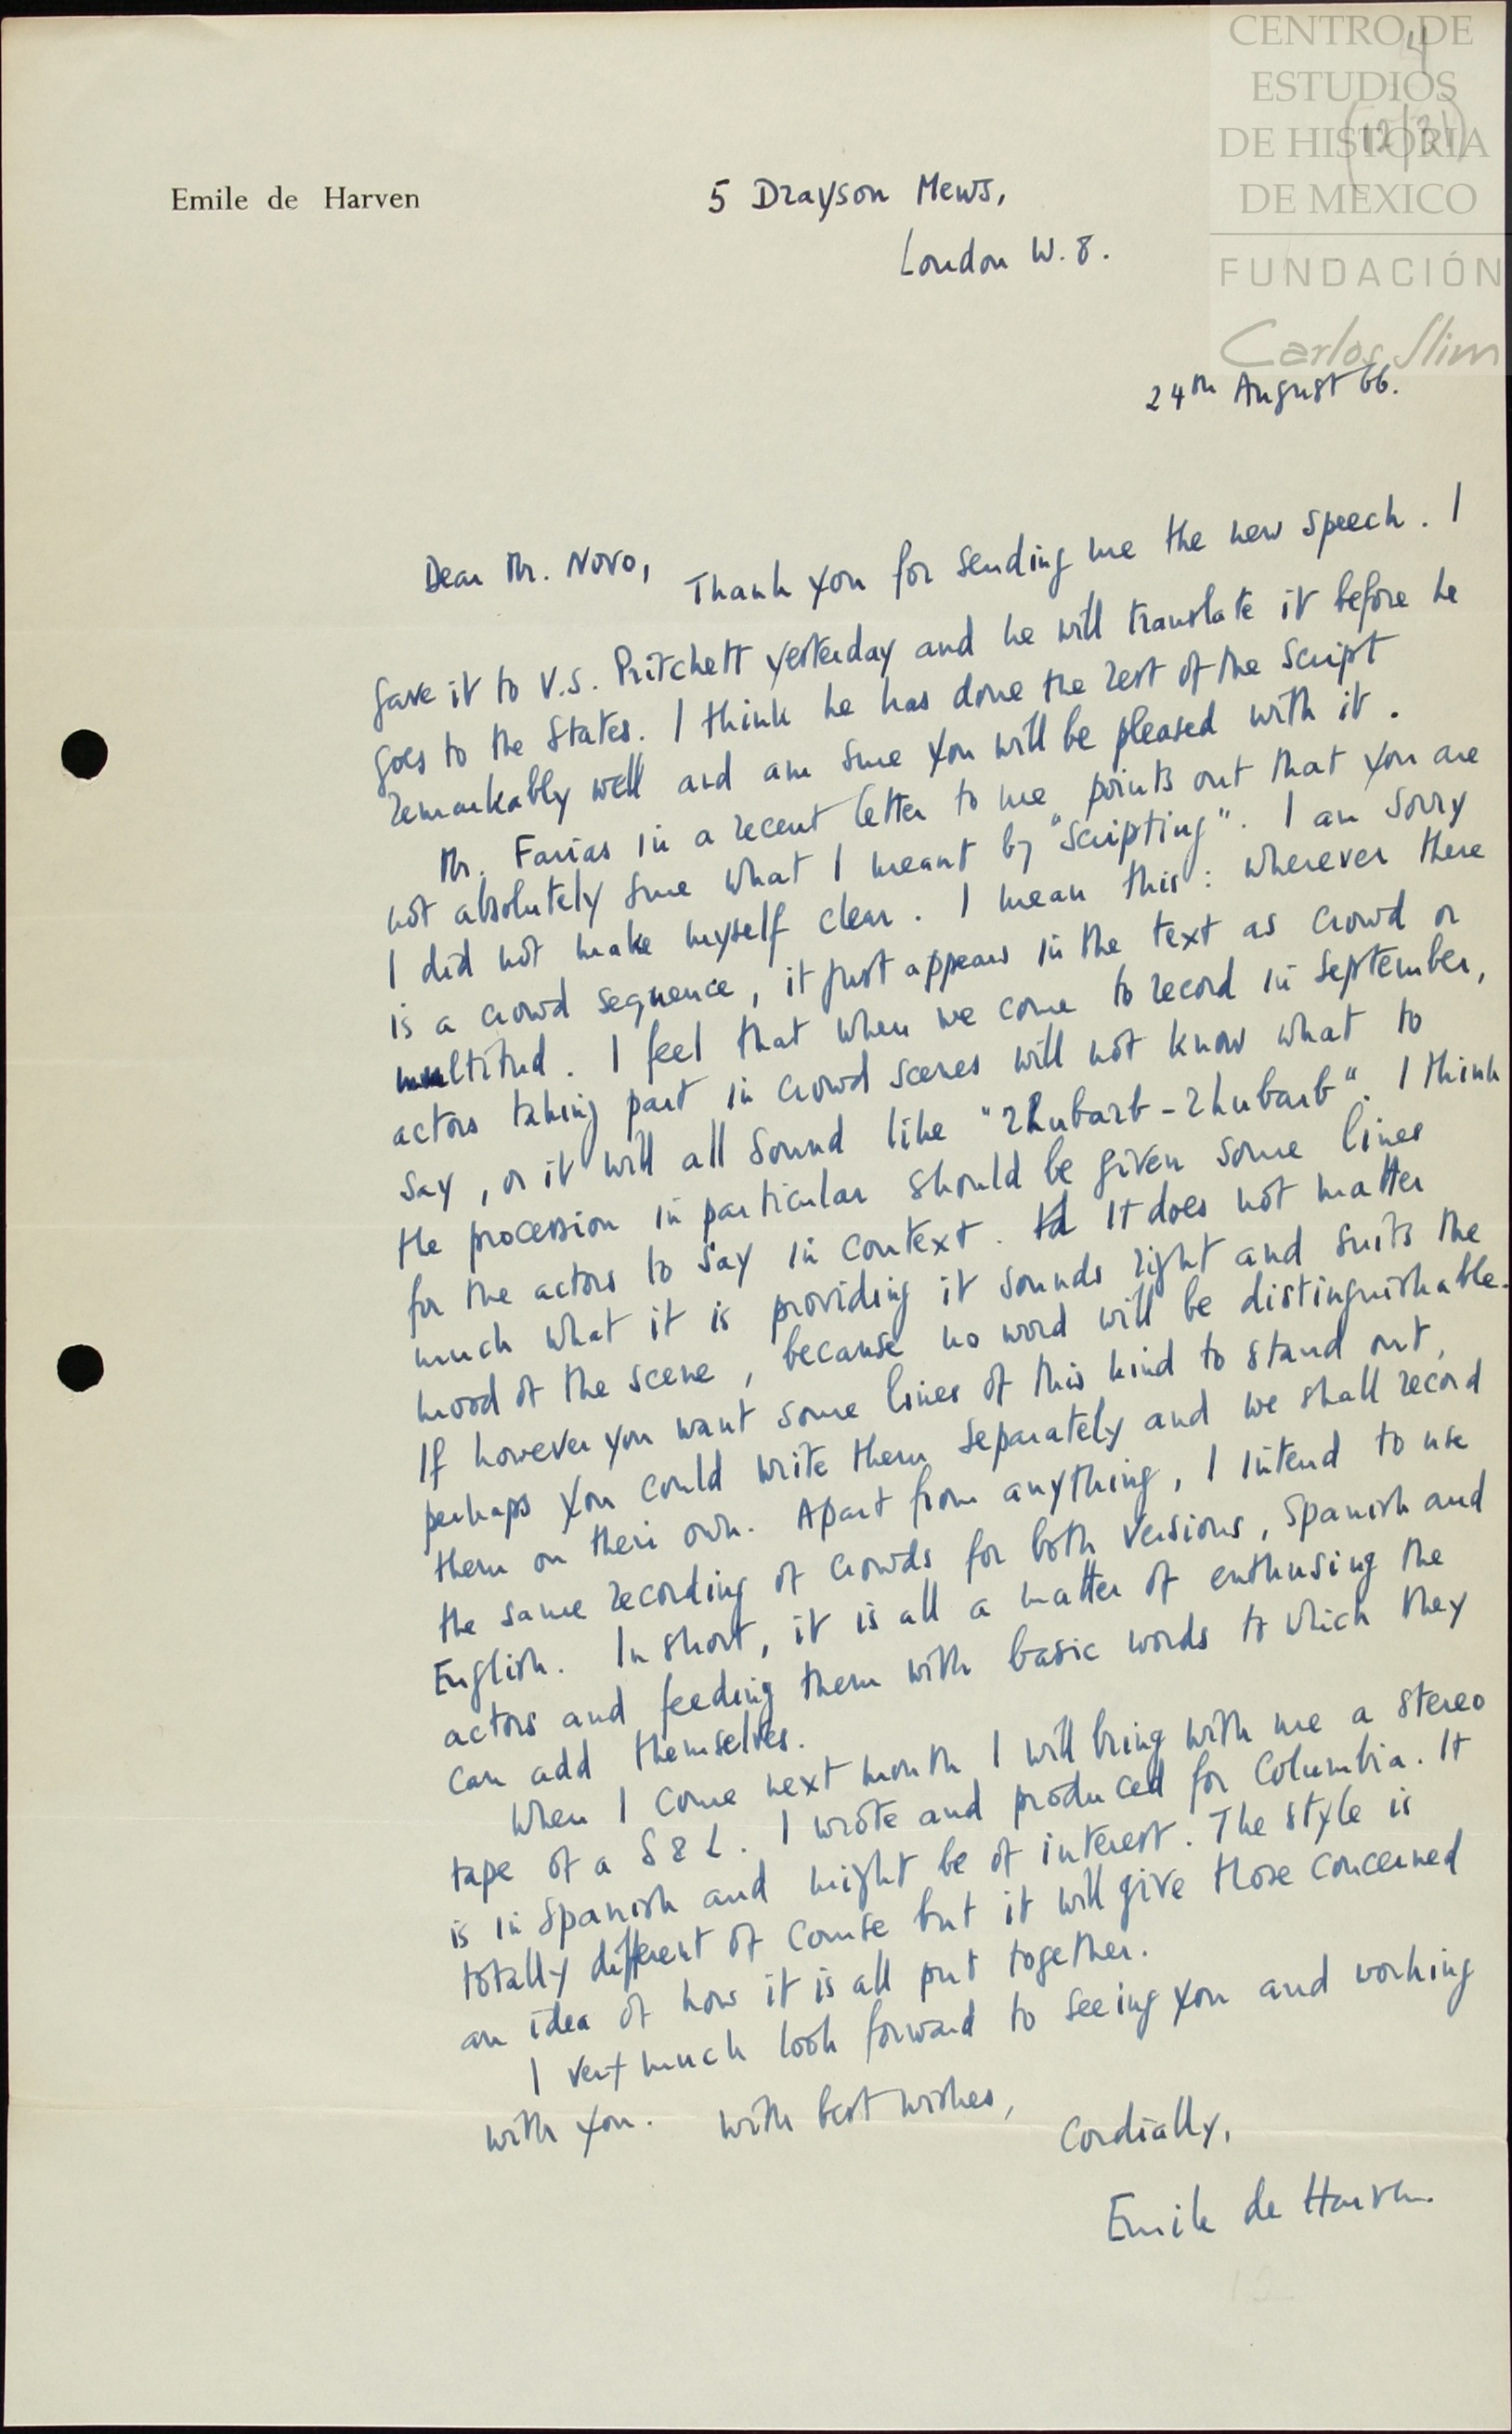 CENTRO DE
ESTUDIOS
DE HISTORIA
DE MEXICO
FUNDACIÓN
Carlos Slim
4
(12/31)
Emile de Harven
5 Drayson Mews,
London W. 8.
24th August 66.
Dear Mr. Novo,
Thank you for sending me the new speech. I
gave it to V.S. Pritchett yesterday and he will translate it before he
goes to the States. I think he has done the rest of the script
remarkably well and am sure you will be pleased with it.
Mr. Farias in a recent letter to me points out that you are
not absolutely sure what I meant by "scripting". I am sorry
I did not make myself clear. I mean this: wherever there
is a crowd sequence, it just appears in the text as crowd or
multitud. I feel that when we come to record in September,
actors taking part in crowd scenes will not know what to
say, or it will all sound like "rhubarb-rhubarb". I think
the procession in particular should be given some lines
for the actors to say in context. It does not matter
much what it is providing it sounds right and suits the
mood of the scene, because no word will be distinguishable.
If however you want some lines of this kind to stand out,
perhaps you could write them separately and we shall record
them on their own. Apart from anything, I intend to use
the same recording of crowds for both versions, Spanish and
English. In short, it is all a matter of enthusing the
actors and feeding them with basic words to which they
can add themselves.
When I come next month I will bring with me a stereo
tape of a S & L. I wrote and produced for Columbia. It
is in Spanish and might be of interest. The style is
totally different of course but it will give those concerned
an idea of how it is all put together.
I very much look forward to seeing you and working
with you. With best wishes,
Cordially,
Emile de Harven.